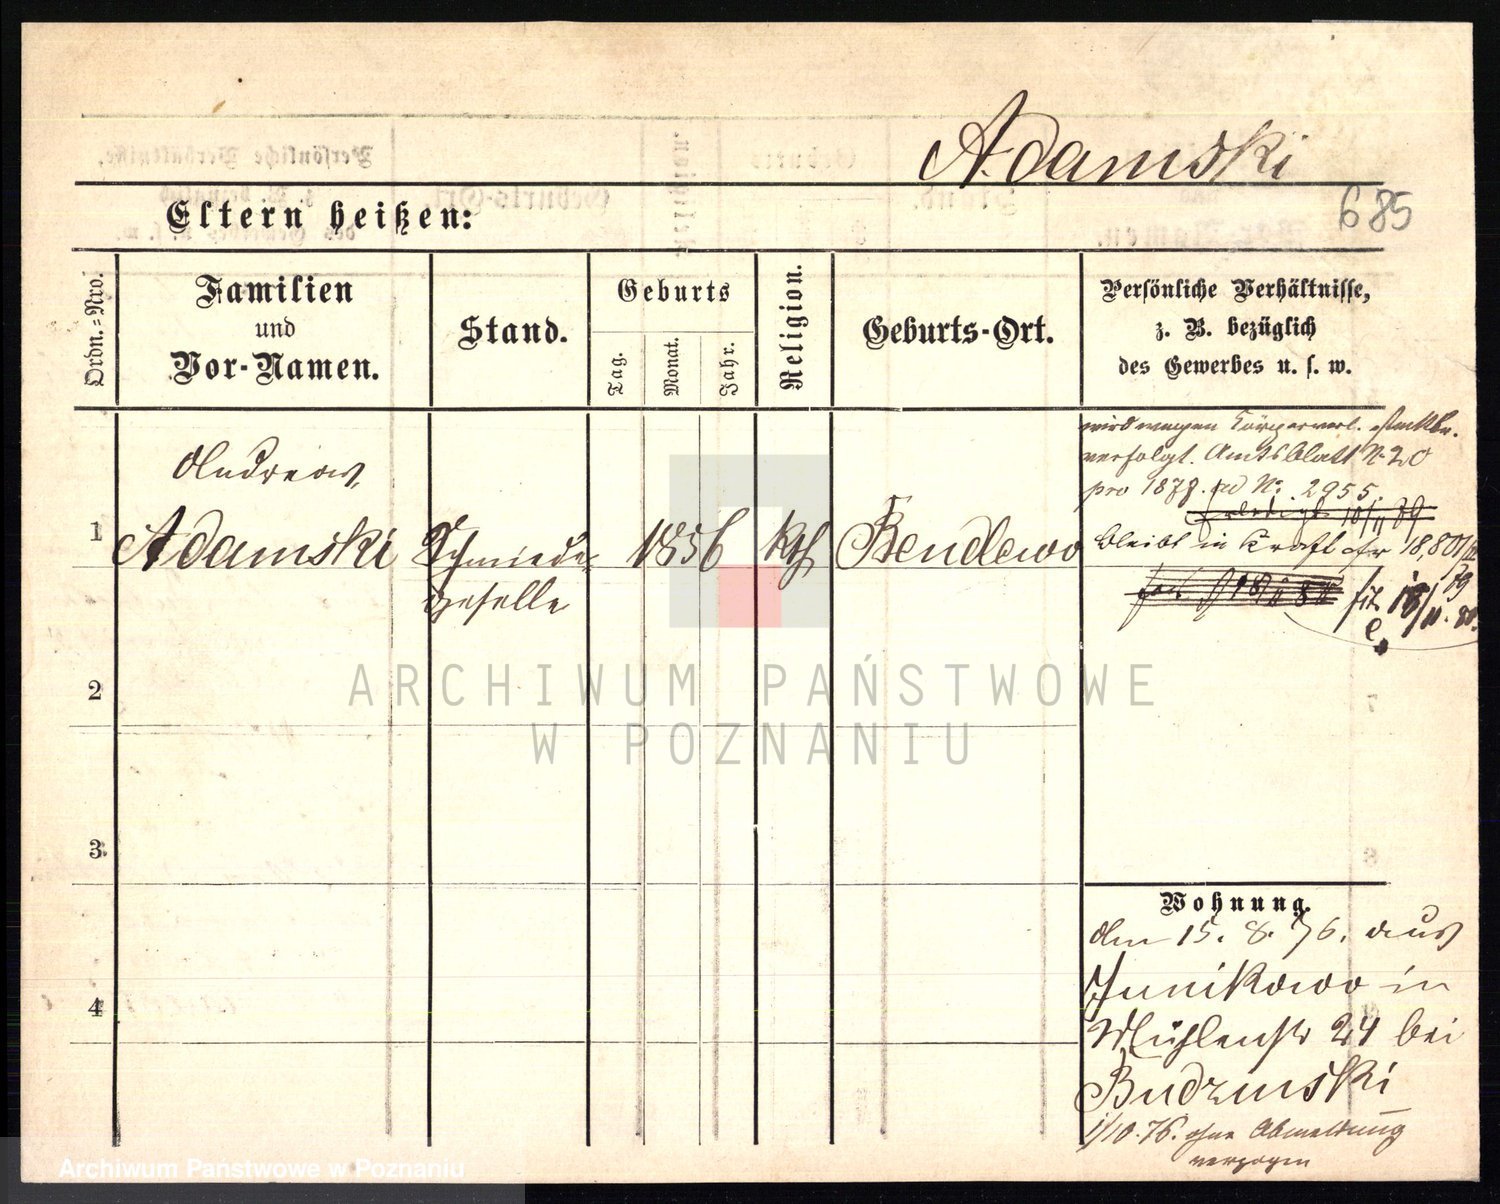 Adamski
685
Eltern heißen:
Ordn.-Nro.
Familien
und
Vor-Namen.
Stand.
Geburts
Tag.
Monat.
Jahr.
Religion.
Geburts-Ort.
Persönliche Verhältnisse,
z. B. bezüglich
des Gewerbes u. s. w.
1
Andreas
Adamski
Schmiede-
geselle
1856
kth
Bendlewo
wird wegen Körperverl. steckbr.
verfolgt. Amtsblatt N. 20
pro 1878. ad No. 2955.
erledigt 10/11 79
bleibt in Kraft cfr 18,801/
79
2
3
4
Wohnung.
Am 15. 8. 76. aus
Junikowo in
Mühlenstr 24 bei
Budzinski
1/10.76. ohne Abmeldung
verzogen
ARCHIWUM PAŃSTWOWE
W POZNANIU
Archiwum Państwowe w Poznaniu